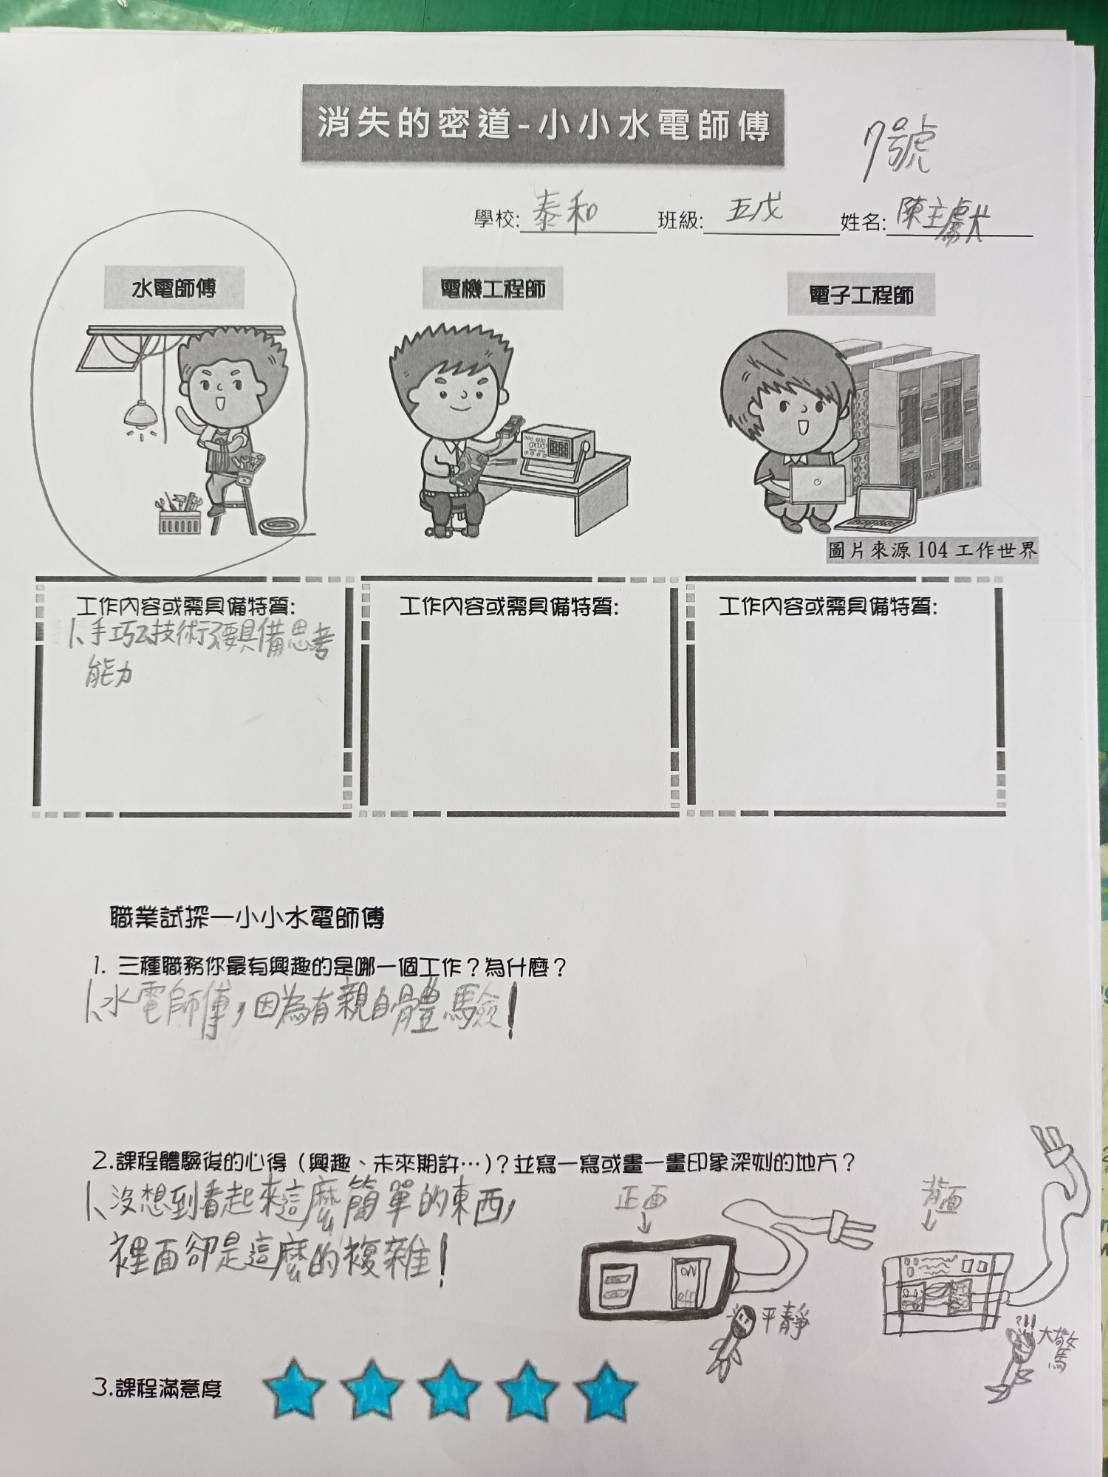 消失的密道-小小水電師傅
7號
學校:泰和 班級:五戊 姓名:陳主獻
水電師傅 電機工程師 電子工程師
圖片來源 104 工作世界
工作內容或需具備特質:
1、手巧
技術
要具備思考
能力
工作內容或需具備特質:
工作內容或需具備特質:
職業試探—小小水電師傅
1. 三種職務你最有興趣的是哪一個工作？為什麼？
1、水電師傅，因為有親自體驗！
2.課程體驗後的心得（興趣、未來期許…）？並寫一寫或畫一畫印象深刻的地方？
1、沒想到看起來這麼簡單的東西，
裡面卻是這麼的複雜！
正面
ON
off
平靜
背面
?!!
大驚
3.課程滿意度